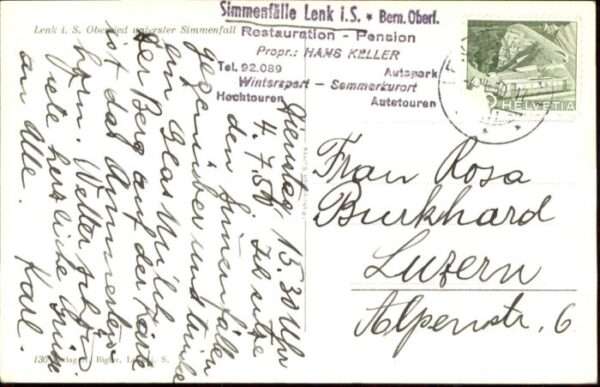 Lenk i. S. Oberried unterster Simmenfall
Simmenfälle Lenk i. S. * Bern. Oberl.
Restauration - Pension
Propr.: HANS KELLER
Tel. 92.089 Autopark
Wintersport - Sommerkurort
Hochtouren Autotouren
HELVETIA
Frau Rosa
Burkhard
Luzern
Alpenstr. 6
Dienstag 15.30 Uhr
4.7.50. Ich sitze
den Simmenfällen
gegenüber und trinke
ein Glas Milch
der Berg auf der Karte
ist das
hfn. Wetter schön
viele herzliche Grüsse
an Alle.
Karl.